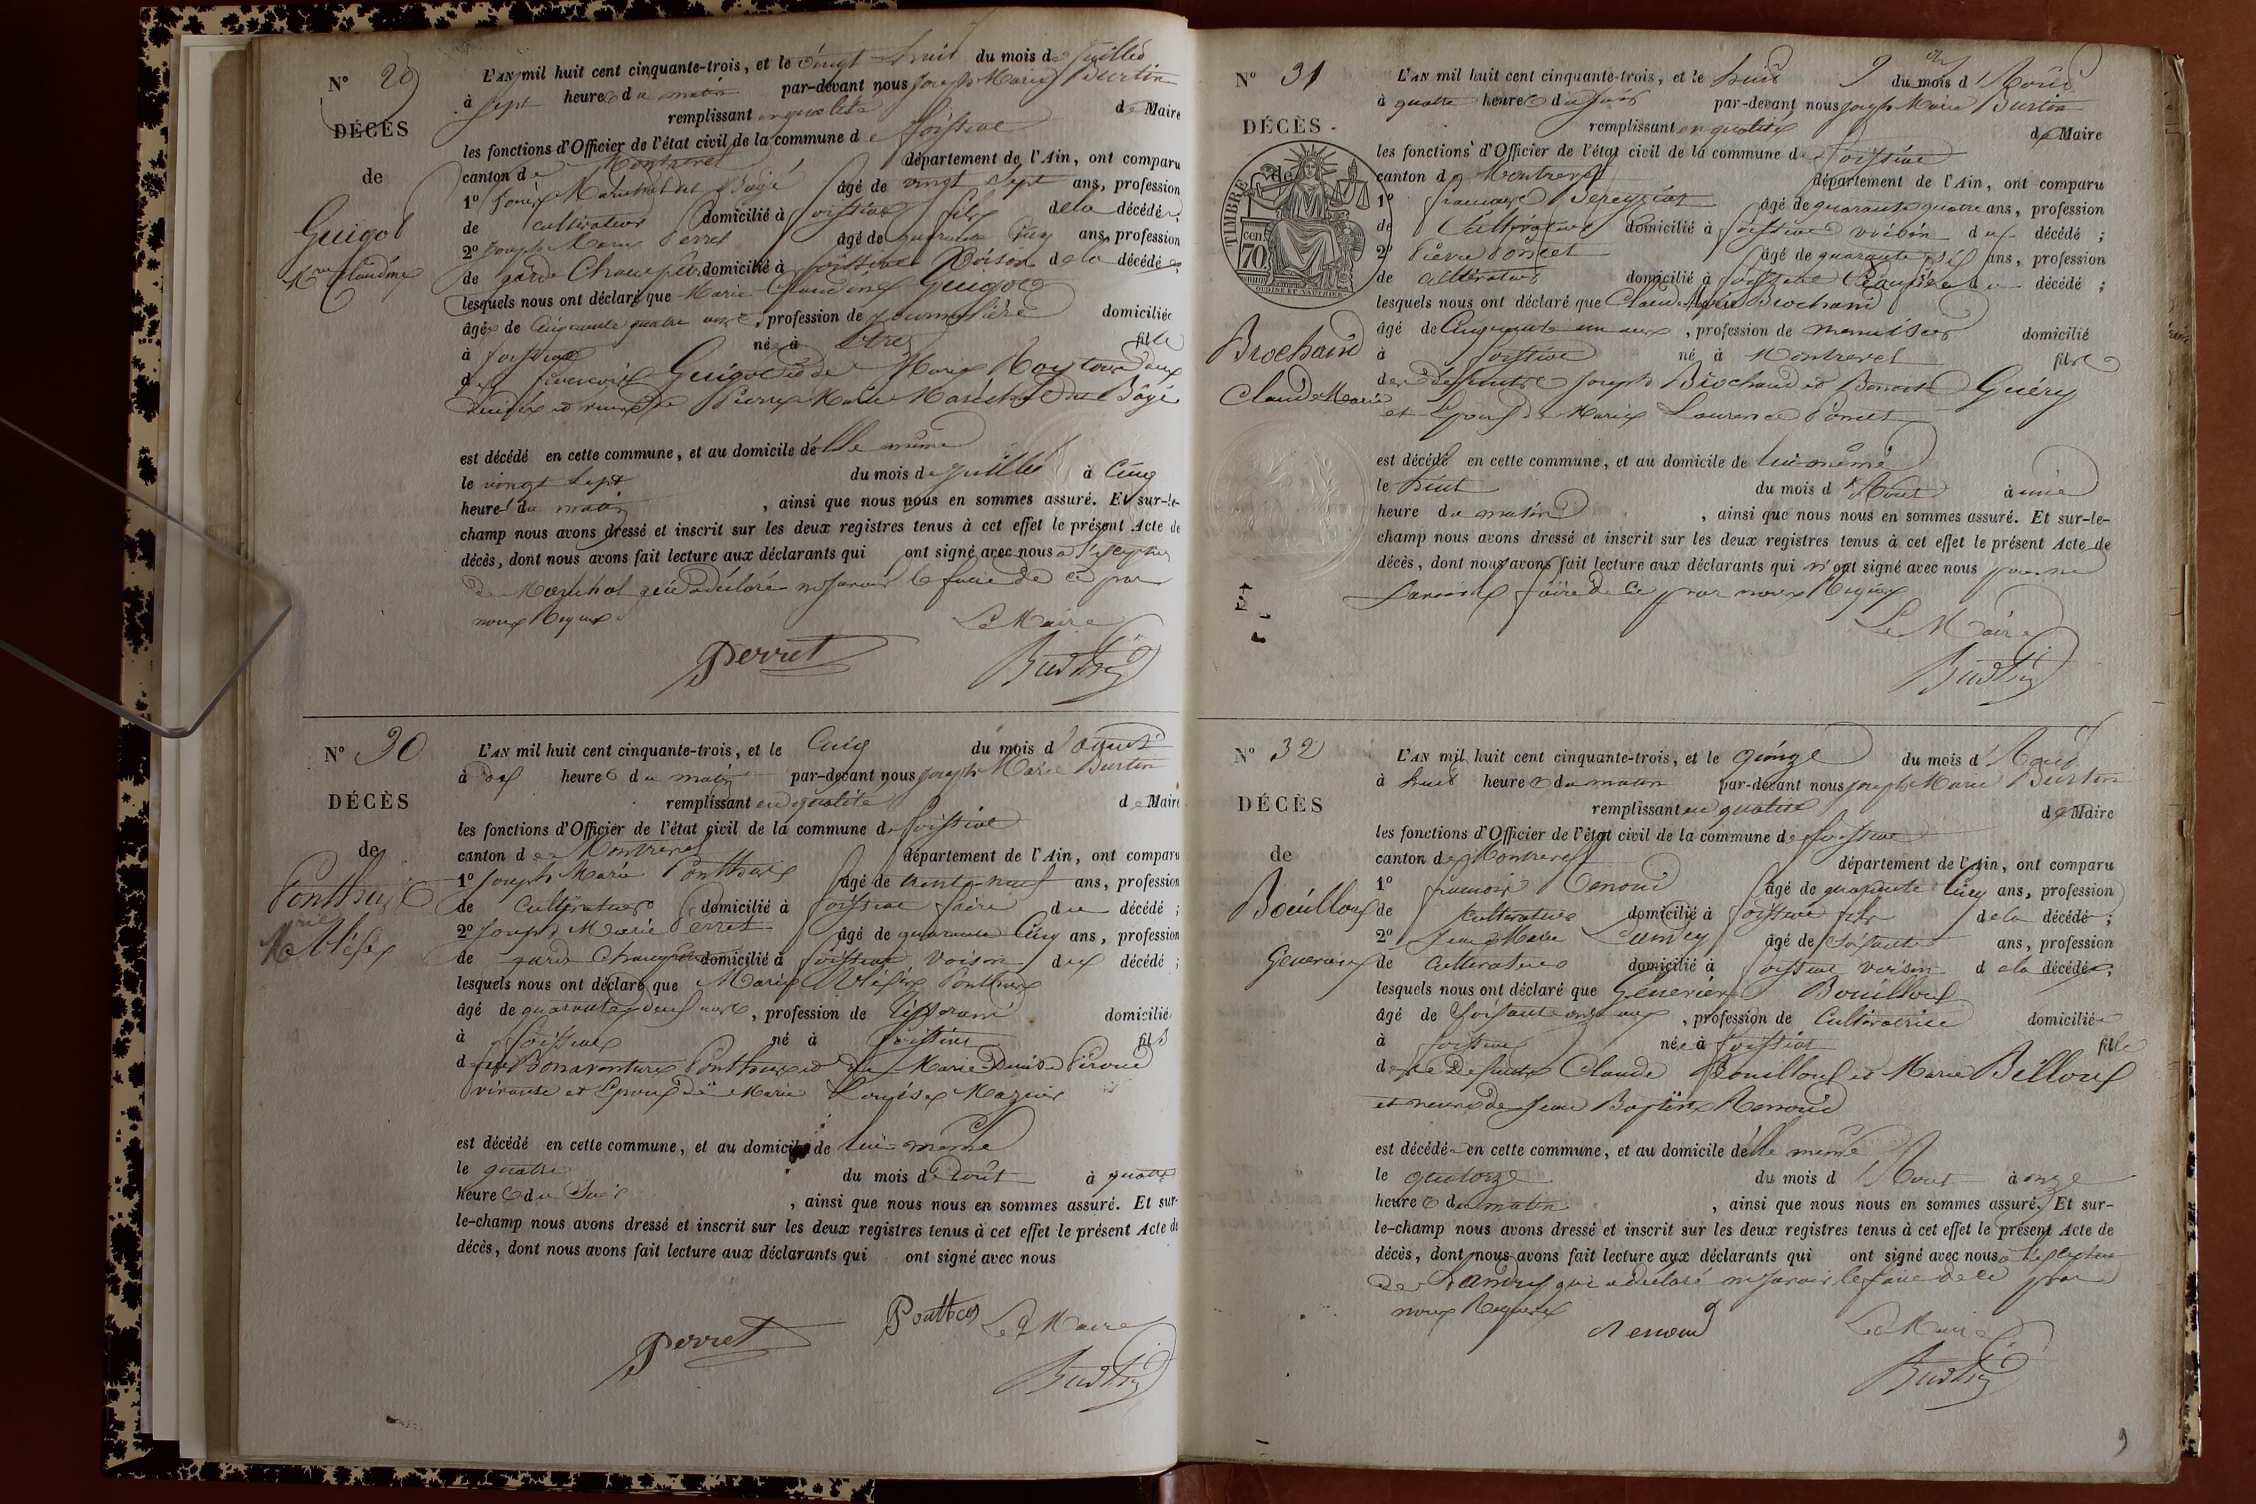 N° 29
DÉCÈS
de
Guigot
Mie Claudine
L'AN mil huit cent cinquante-trois, et le vingt huit du mois de juillet
à sept heures du matin par-devant nous Joseph Marie Burtin
remplissant en qualité de Maire
les fonctions d'Officier de l'état civil de la commune de Foissiat
canton de Montrevel département de l'Ain, ont comparu
1° Louis Maréchal dit Bagé âgé de vingt sept ans, profession
de cultivateur domicilié à Foissiat fils de la décédée;
2° Joseph Marie Perret âgé de quarante cinq ans, profession
de garde Champêtre domicilié à Foissiat voisin de la décédée;
lesquels nous ont déclaré que Marie Claudine Guigot
âgée de Cinquante quatre ans, profession de journalière domiciliée
à Foissiat née à fille
de François Guigot et de Marie
et veuve de Pierre Marie Maréchal dit Bagé
est décédé en cette commune, et au domicile d'elle même
le vingt sept du mois de juillet à Cinq
heures du matin, ainsi que nous nous en sommes assuré. Et sur-le-
champ nous avons dressé et inscrit sur les deux registres tenus à cet effet le présent Acte de
décès, dont nous avons fait lecture aux déclarants qui ont signé avec nous à l'exception
de Maréchal qui a déclaré ne savoir le faire de ce par
nous Requis
Le Maire
Perret Burtin
N° 30
DÉCÈS
de
Ponthus
Mie Eléz
L'AN mil huit cent cinquante-trois, et le Cinq du mois d'août
à dix heures du matin par-devant nous Joseph Marie Burtin
remplissant en qualité de Maire
les fonctions d'Officier de l'état civil de la commune de Foissiat
canton de Montrevel département de l'Ain, ont comparu
1° Joseph Marie Ponthus âgé de trente neuf ans, profession
de Cultivateur domicilié à Foissiat frère du décédé;
2° Joseph Marie Perret âgé de quarante Cinq ans, profession
de garde Champêtre domicilié à Foissiat voisin du décédé;
lesquels nous ont déclaré que Marie Ponthus
âgé de quarante deux ans, profession de tisserand domicilié
à Foissiat né à Foissiat fils
de feu Bonaventure Ponthus et de Marie Denise Péroud
vivante et Epoux de Marie Louise Mazuir
est décédé en cette commune, et au domicile de lui-même
le quatre du mois d'août à quatre
heures du Soir, ainsi que nous nous en sommes assuré. Et sur-
le-champ nous avons dressé et inscrit sur les deux registres tenus à cet effet le présent Acte de
décès, dont nous avons fait lecture aux déclarants qui ont signé avec nous
Ponthus Le Maire
Perret Burtin
N° 31
DÉCÈS
de
TIMBRE
70 cen
Brochand
Claude Marie
L'AN mil huit cent cinquante-trois, et le huit du mois d'Août
à quatre heures du soir par-devant nous Joseph Marie Burtin
remplissant en qualité de Maire
les fonctions d'Officier de l'état civil de la commune de Foissiat
canton de Montrevel département de l'Ain, ont comparu
1° François Pereyziat âgé de quarante quatre ans, profession
de Cultivateur domicilié à Foissiat voisin du décédé;
2° Pierre Poncet âgé de quarante six ans, profession
de cultivateur domicilié à Foissiat du décédé;
lesquels nous ont déclaré que Claude Marie Brochand
âgé de Cinquante un ans, profession de menuisier domicilié
à Foissiat né à Montrevel fils
des défunts Joseph Brochand et Benoite Guéry
et Epoux de Marie Laurence Poncet
est décédé en cette commune, et au domicile de lui même
le huit du mois d'Août à une
heure du matin, ainsi que nous nous en sommes assuré. Et sur-le-
champ nous avons dressé et inscrit sur les deux registres tenus à cet effet le présent Acte de
décès, dont nous avons fait lecture aux déclarants qui n'ont signé avec nous pour ne
savoir le faire de ce par nous Requis
Le Maire
Burtin
N° 32
DÉCÈS
de
Bouilloux
Geneviève
L'AN mil huit cent cinquante-trois, et le quinze du mois d'Août
à huit heures du matin par-devant nous Joseph Marie Burtin
remplissant en qualité de Maire
les fonctions d'Officier de l'état civil de la commune de Foissiat
canton de Montrevel département de l'Ain, ont comparu
1° François Renoud âgé de quarante Cinq ans, profession
de Cultivateur domicilié à Foissiat fils de la décédée;
2° Jean Marie âgé de soixante ans, profession
de Cultivateur domicilié à Foissiat voisin de la décédée;
lesquels nous ont déclaré que Geneviève Bouilloux
âgé de soixante onze ans, profession de Cultivatrice domiciliée
à Foissiat née à Foissiat fille
des Défunts Claude Bouilloux et Marie Billoux
et veuve de Jean Baptiste Renoud
est décédée en cette commune, et au domicile d'elle même
le quatorze du mois d'Août à onze
heures du matin, ainsi que nous nous en sommes assuré. Et sur-
le-champ nous avons dressé et inscrit sur les deux registres tenus à cet effet le présent Acte de
décès, dont nous avons fait lecture aux déclarants qui ont signé avec nous à l'exception
de qui a déclaré ne savoir le faire de ce par
nous Requis
Renoud Le Maire
Burtin
9